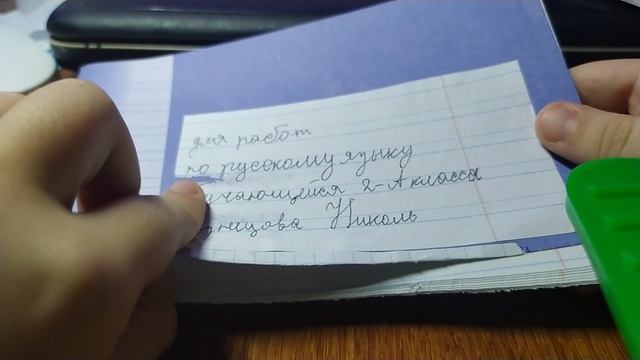 для работ
по русскому языку
чающейся 2-А классы
знецова Николь